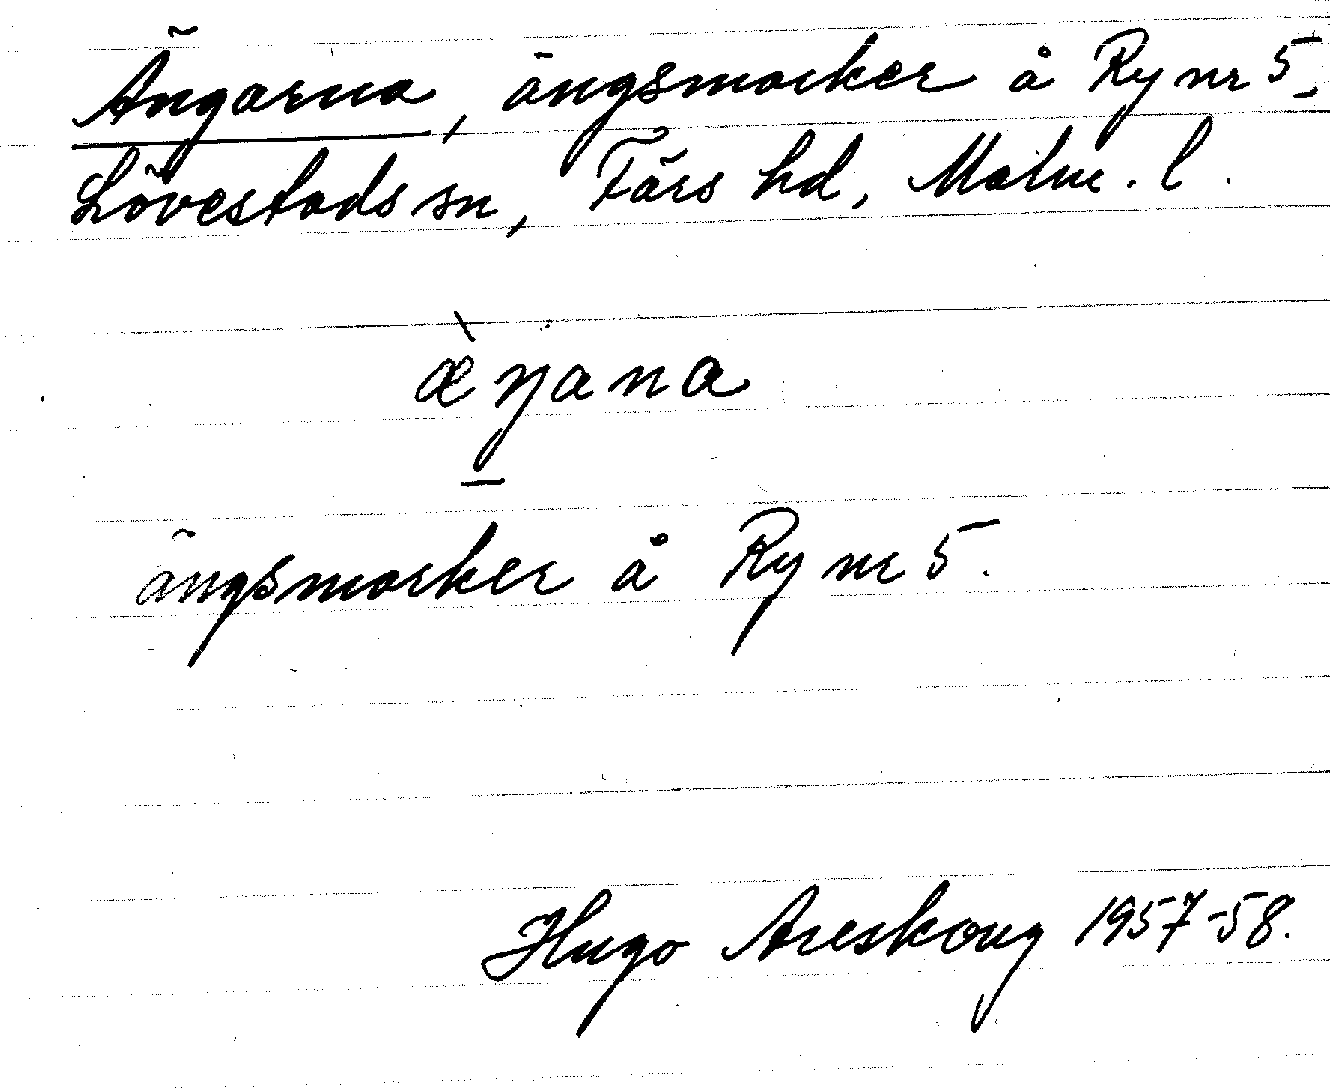 Ängarna, ängsmarker å Ry nr 5.
Lövestads sn, Färs hd, Malm. l.
æ̀ŋana
ängsmarker å Ry nr 5.
Hugo Areskoug 1957-58.